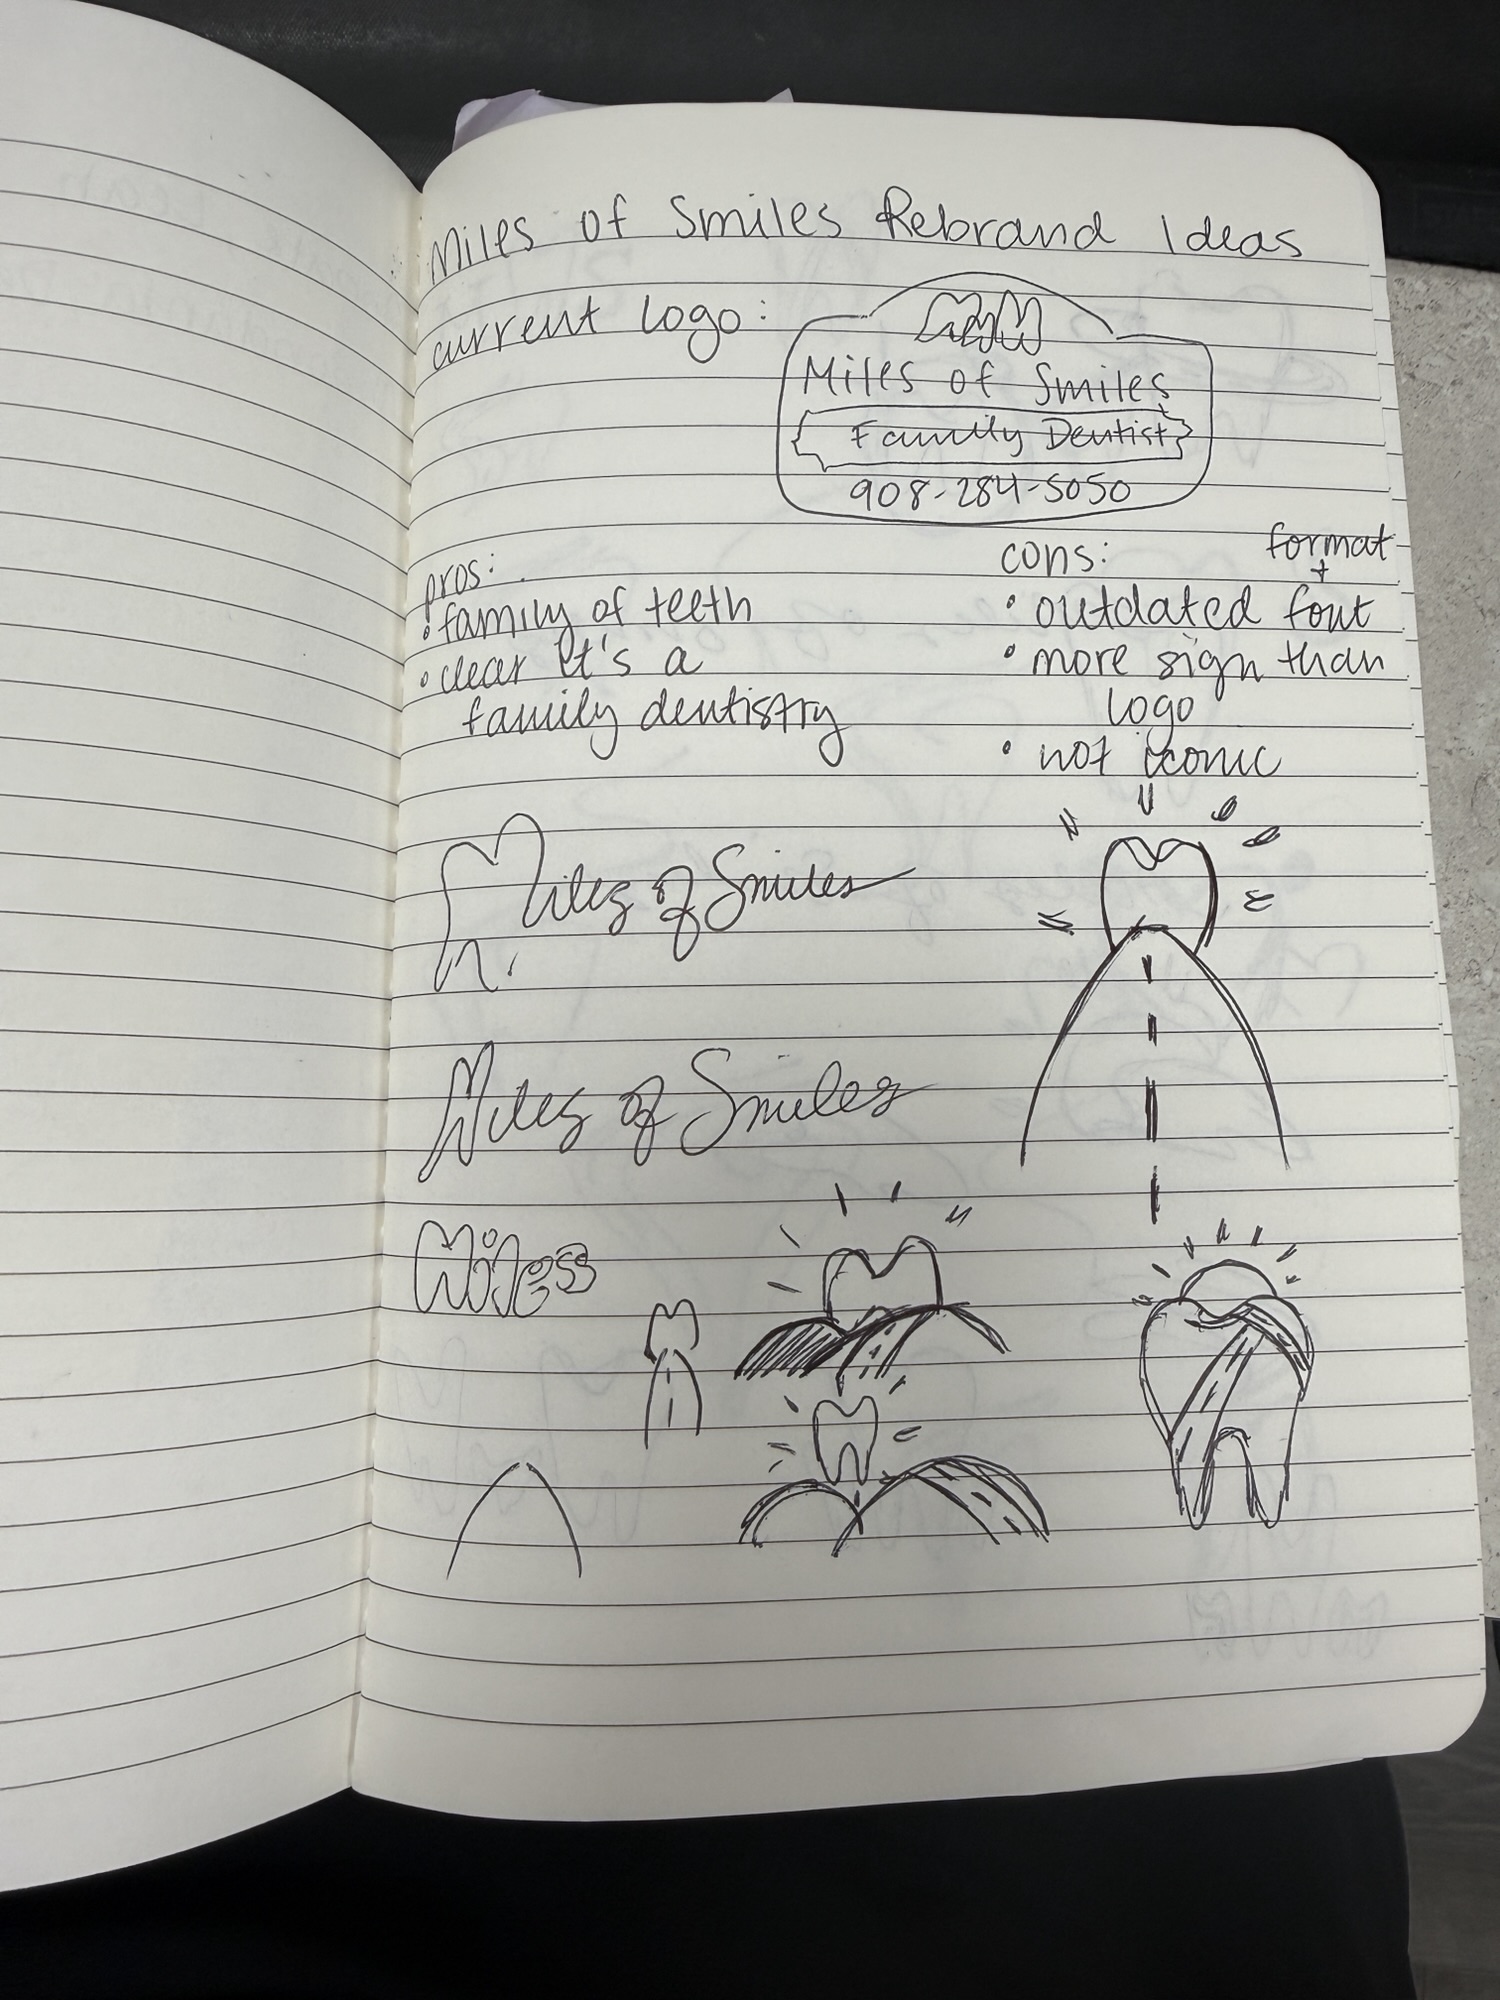 Miles of Smiles Rebrand Ideas
current logo:
Miles of Smiles
Family Dentist
908-284-5050
pros:
• family of teeth
• clear it's a
family dentistry
cons:
format
+
• outdated font
• more sign than
logo
• not iconic
Miles of Smiles
Miles of Smiles
Miless